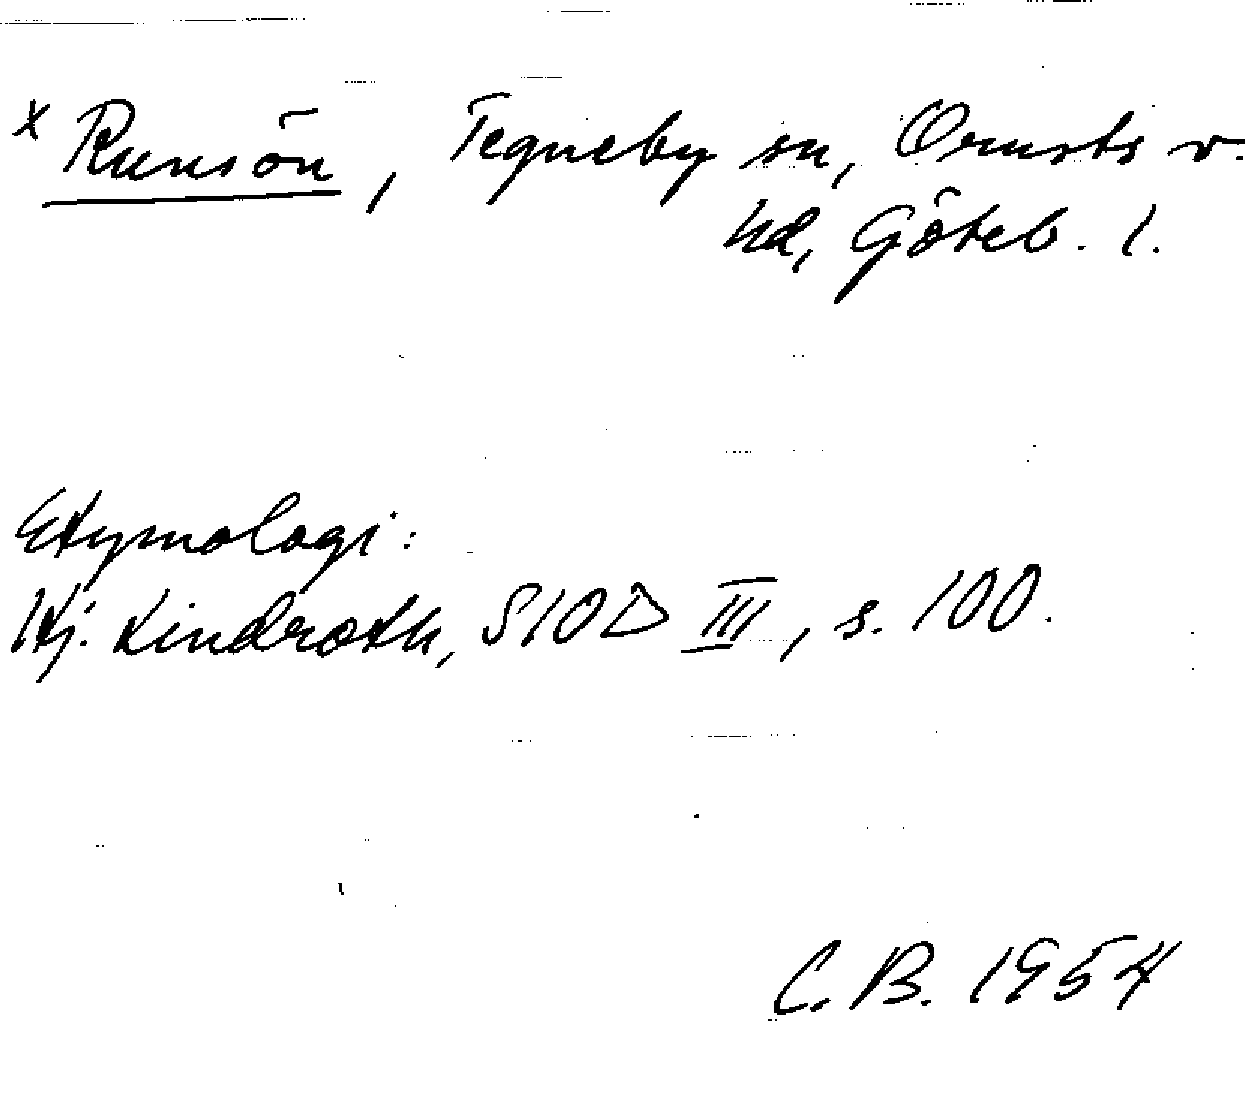 x Runsön, Tegneby sn, Orusts v.
hd, Göteb. l.
Etymologi:
Hj. Lindroth, SIOD III, s. 100.
C. B. 1954